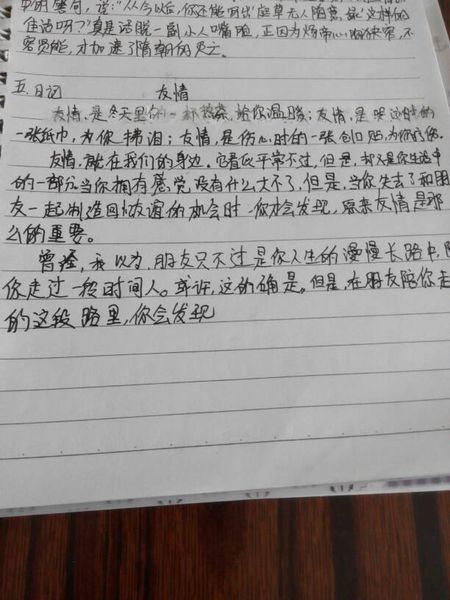 说:"从今以后,你还能呤出'庭草无人随意绿'这样的
佳话吗?"真是活脱一副小人嘴脸,正因为炀帝心胸狭窄,不
容贤能,才加速了隋朝的灭亡。
五.日记 友情
友情,是冬天里的一,给你温暖;友情,是哭泣时的
一张纸巾,为你拂泪;友情,是伤心时的一张创口贴,为你疗伤。
友情,就在我们的身边。它看似平常不过,但是,却又是你生活中
的一部分当你拥有感觉没有什么大不了,但是,当你失去了和朋
友一起制造回忆友谊的机会时,你才会发现,原来友情是那
么的重要。
曾经,我以为,朋友只不过是你人生的漫慢长路中,
你走过一段时间人。或许,这的确是。但是,在朋友陪你走
的这段路里,你会发现